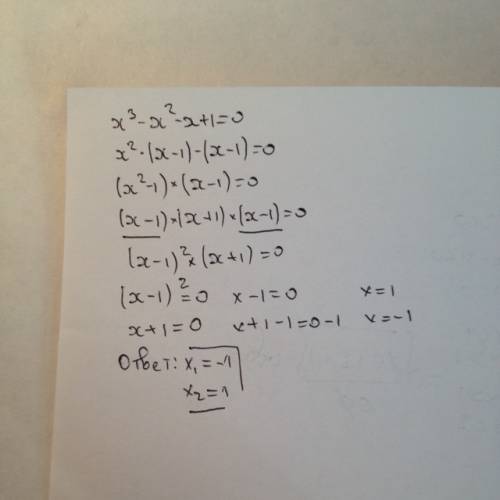 x³-x²-x+1=0
x²·(x-1)-(x-1)=0
(x²-1)×(x-1)=0
(x-1)×(x+1)×(x-1)=0
(x-1)²×(x+1)=0
(x-1)²=0 x-1=0 x=1
x+1=0 x+1-1=0-1 x=-1
Ответ: x₁=-1
x₂=1